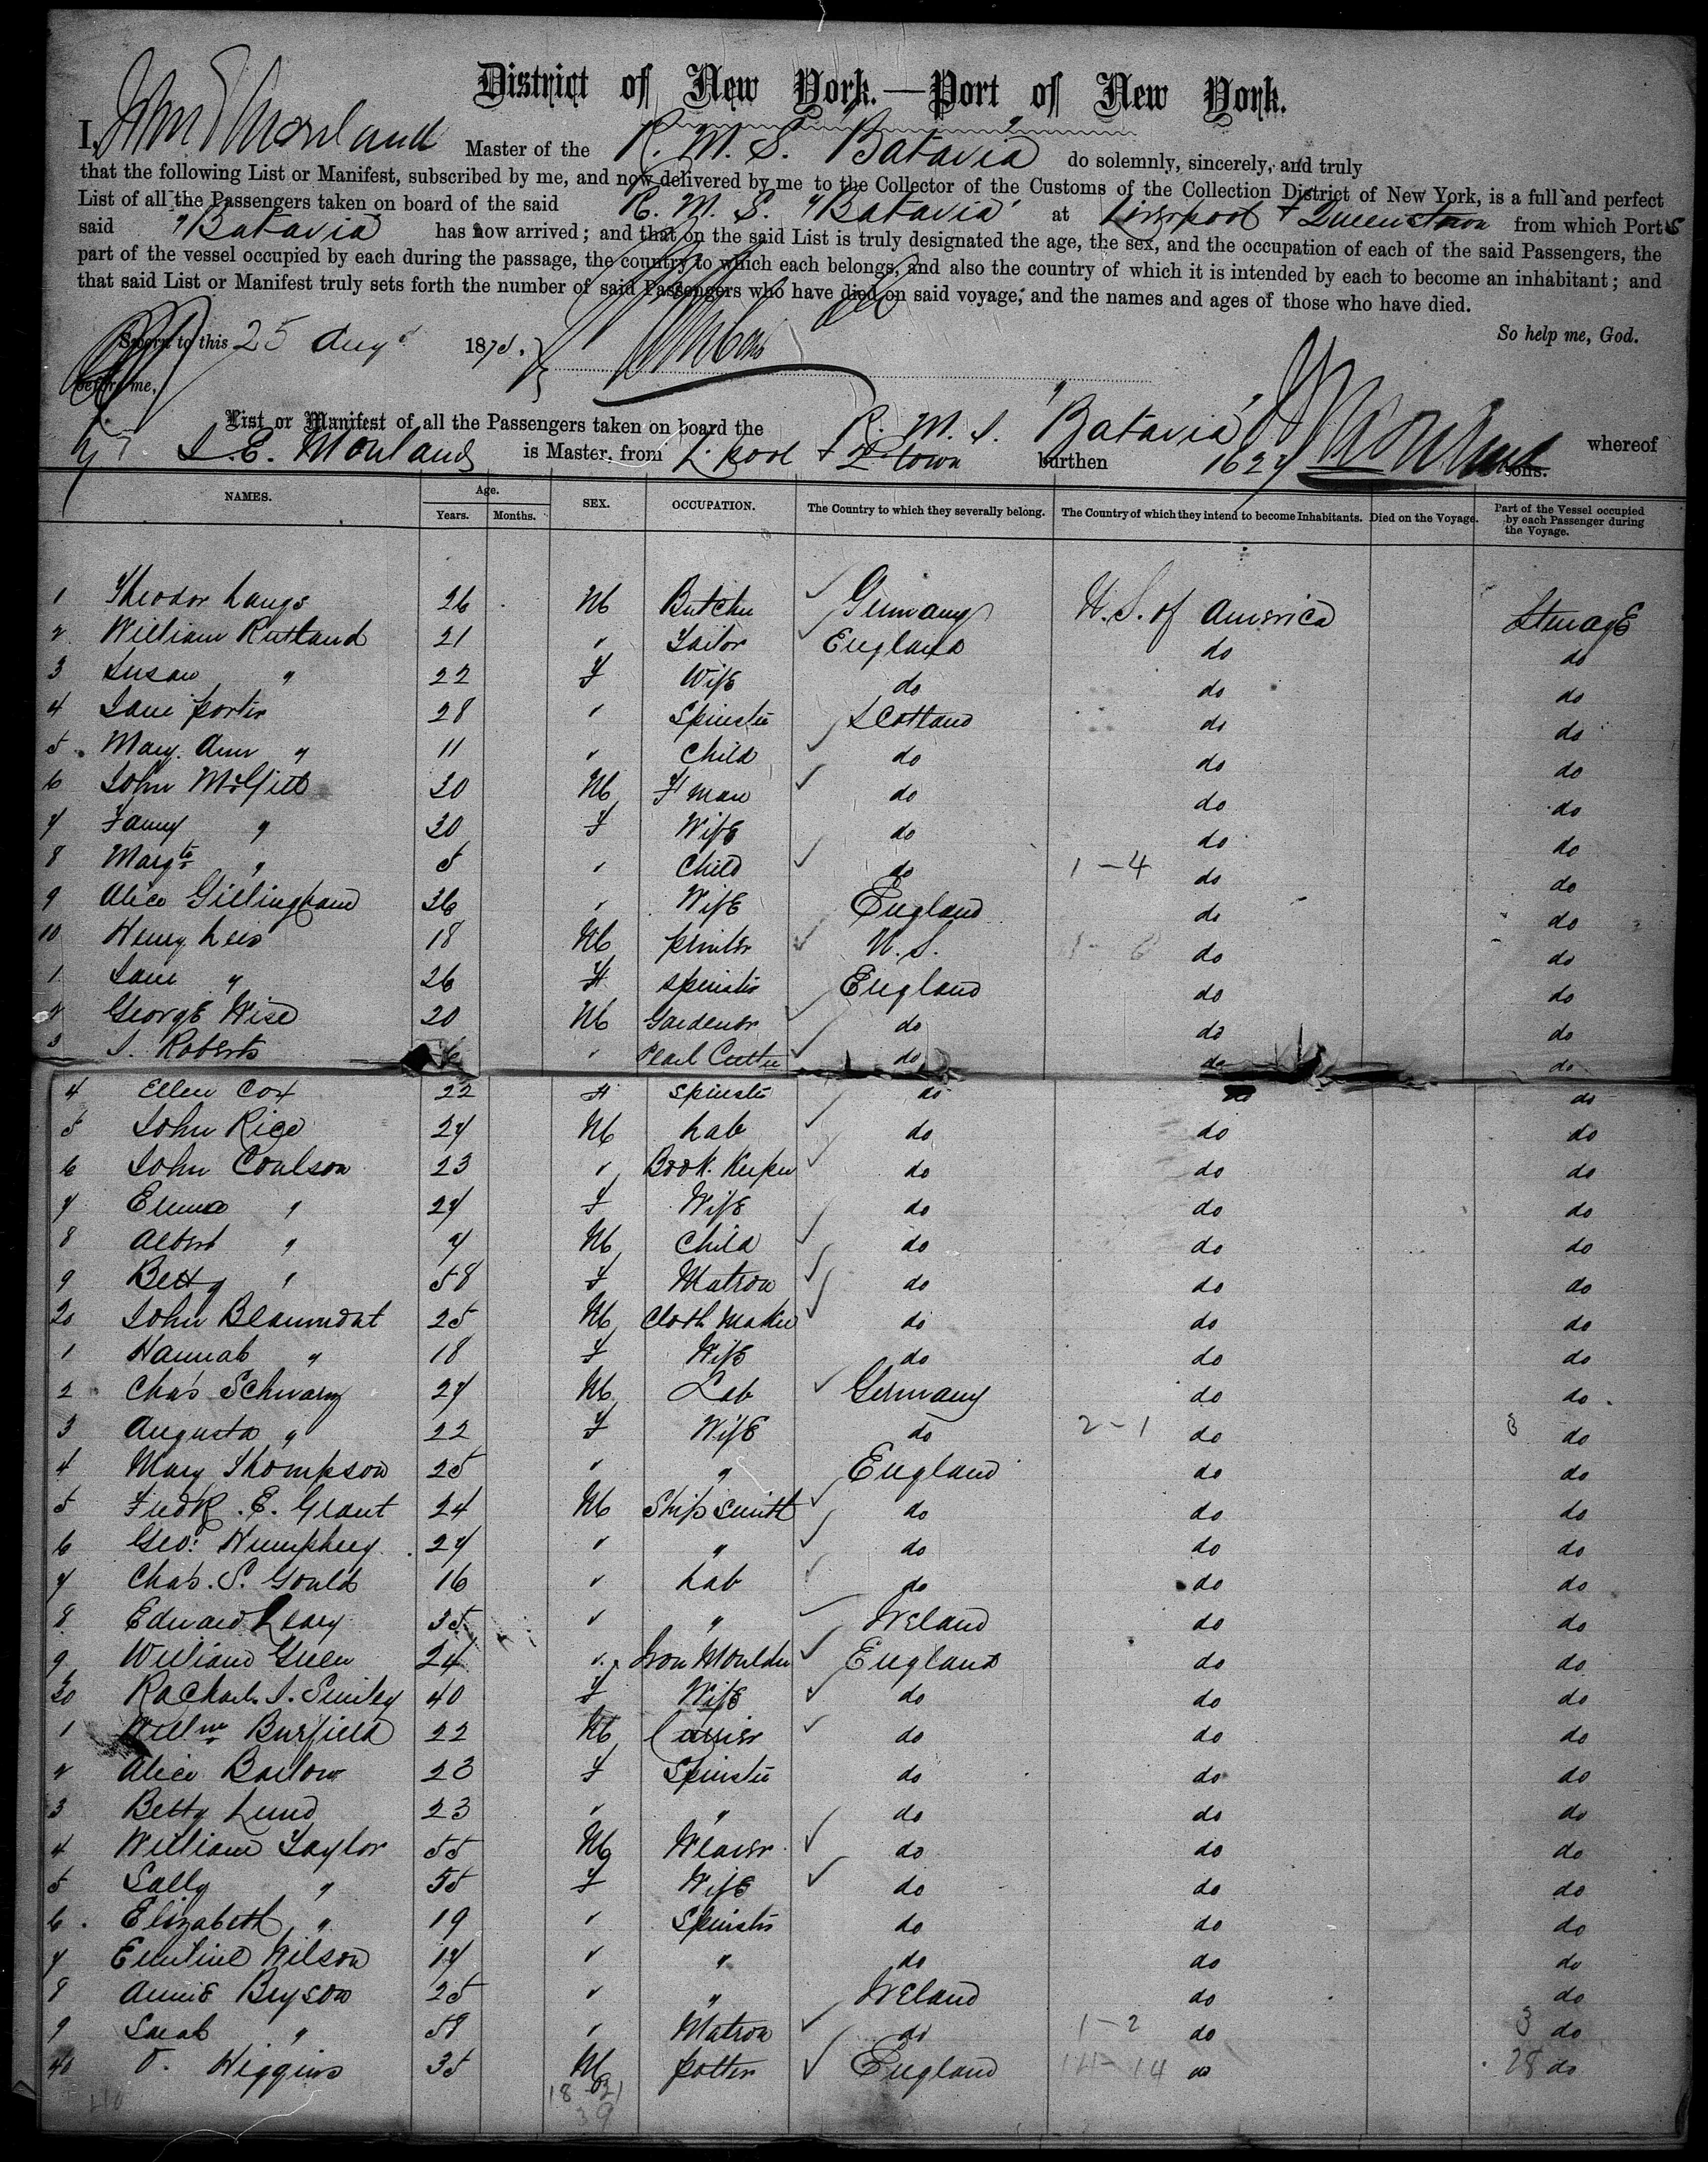 District of New York.—Port of New York.
I, Master of the R. M. S. "Batavia" do solemnly, sincerely, and truly
that the following List or Manifest, subscribed by me, and now delivered by me to the Collector of the Customs of the Collection District of New York, is a full and perfect
List of all the Passengers taken on board of the said R. M. S. "Batavia" at Liverpool + Queenstown from which Port s
said "Batavia" has now arrived; and that on the said List is truly designated the age, the sex, and the occupation of each of the said Passengers, the
part of the vessel occupied by each during the passage, the country to which each belongs, and also the country of which it is intended by each to become an inhabitant; and
that said List or Manifest truly sets forth the number of said Passengers who have died on said voyage, and the names and ages of those who have died.
So help me, God.
Sworn to this 25 Augt 187
before me,
List or Manifest of all the Passengers taken on board the R. M. S. "Batavia" whereof
J. E. Mouland is Master, from L'pool + Q town burthen 1627 tons.
NAMES. Age. Years. Months. SEX. OCCUPATION. The Country to which they severally belong. The Country of which they intend to become Inhabitants. Died on the Voyage. Part of the Vessel occupied by each Passenger during the Voyage.
1 Theodor 26 M Butcher Germany U. S. of America Steerage
2 William Rutland 21 " Tailor England do do
3 Susan " 22 F Wife do do do
4 Jane Porter 28 " Spinster Scotland do do
5 Mary Ann " 11 " Child do do do
6 John McGill 30 M F man do do do
7 Fanny " 30 F Wife do do do
8 Margt " 5 " Child do 1-4 do do
9 Alice Gillingham 36 " Wife England do do
10 Henry Lees 18 M printer U. S. do do
1 Jane " 26 F Spinster England do do
2 George Wise 20 M Gardener do do do
3 J. Roberts " Pearl Cutter do do do
4 Ellen Cox 22 F Spinster do do do
5 John Rice 27 M Lab do do do
6 John Coulson 23 " Book Keeper do do do
7 Emma " 27 F Wife do do do
8 Albert " 7 M Child do do do
9 Betty " 58 F Matron do do do
20 John Beaumont 25 M Cloth Maker do do do
1 Hannah " 18 F Wife do do do
2 Chas Schwarz 27 M Lab Germany do do
3 Augusta " 22 F Wife do 2-1 do 3 do
4 Mary Thompson 25 " " England do do
5 Fredk. E. Grant 24 M Ship Smith do do do
6 Geo: Humphrey 27 " " do do do
7 Chas. S. Gould 16 " Lab do do do
8 Edward Leary 35 " " Ireland do do
9 William Green 24 " Iron Moulder England do do
30 Rachael J. Smiley 40 F Wife do do do
1 Willm Burfield 22 M Carrier do do do
2 Alice Barlow 23 F Spinster do do do
3 Betty Lund 23 " " do do do
4 William Taylor 55 M Weaver do do do
5 Sally " 55 F Wife do do do
6 Elizabeth " 19 " Spinster do do do
7 Emiline Wilson 17 " " do do do
8 Annie Bryson 25 " " Ireland do do
9 Sarah " 59 " Matron do 1-2 do 3 do
40 Higgins 35 M Potter England 14-14 do 28 do
18 21
39